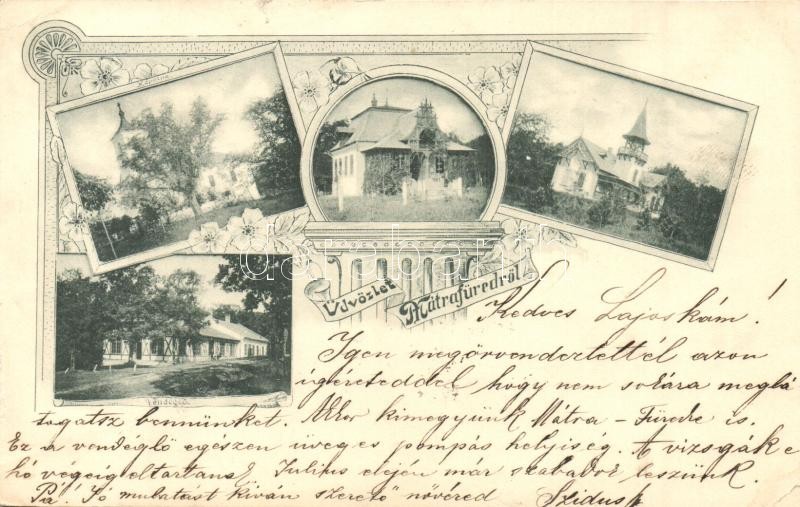 Kápolna
Üdvözlet
Mátrafüredről
Vendéglő
darabanth
Kedves Lajoskám!
Igen megörvendeztettél azon
igéreteddel hogy nem sokára meglá
togatsz bennünket. Akkor kimegyünk Mátra-Füredre is.
Ez a vendéglő egészen üveges pompás helyiség. A vizsgák e
hó végeig eltartanak, Julius elején mar szabadok leszünk.
Pá! Jó mulatást kiván szerető nővéred Szidus